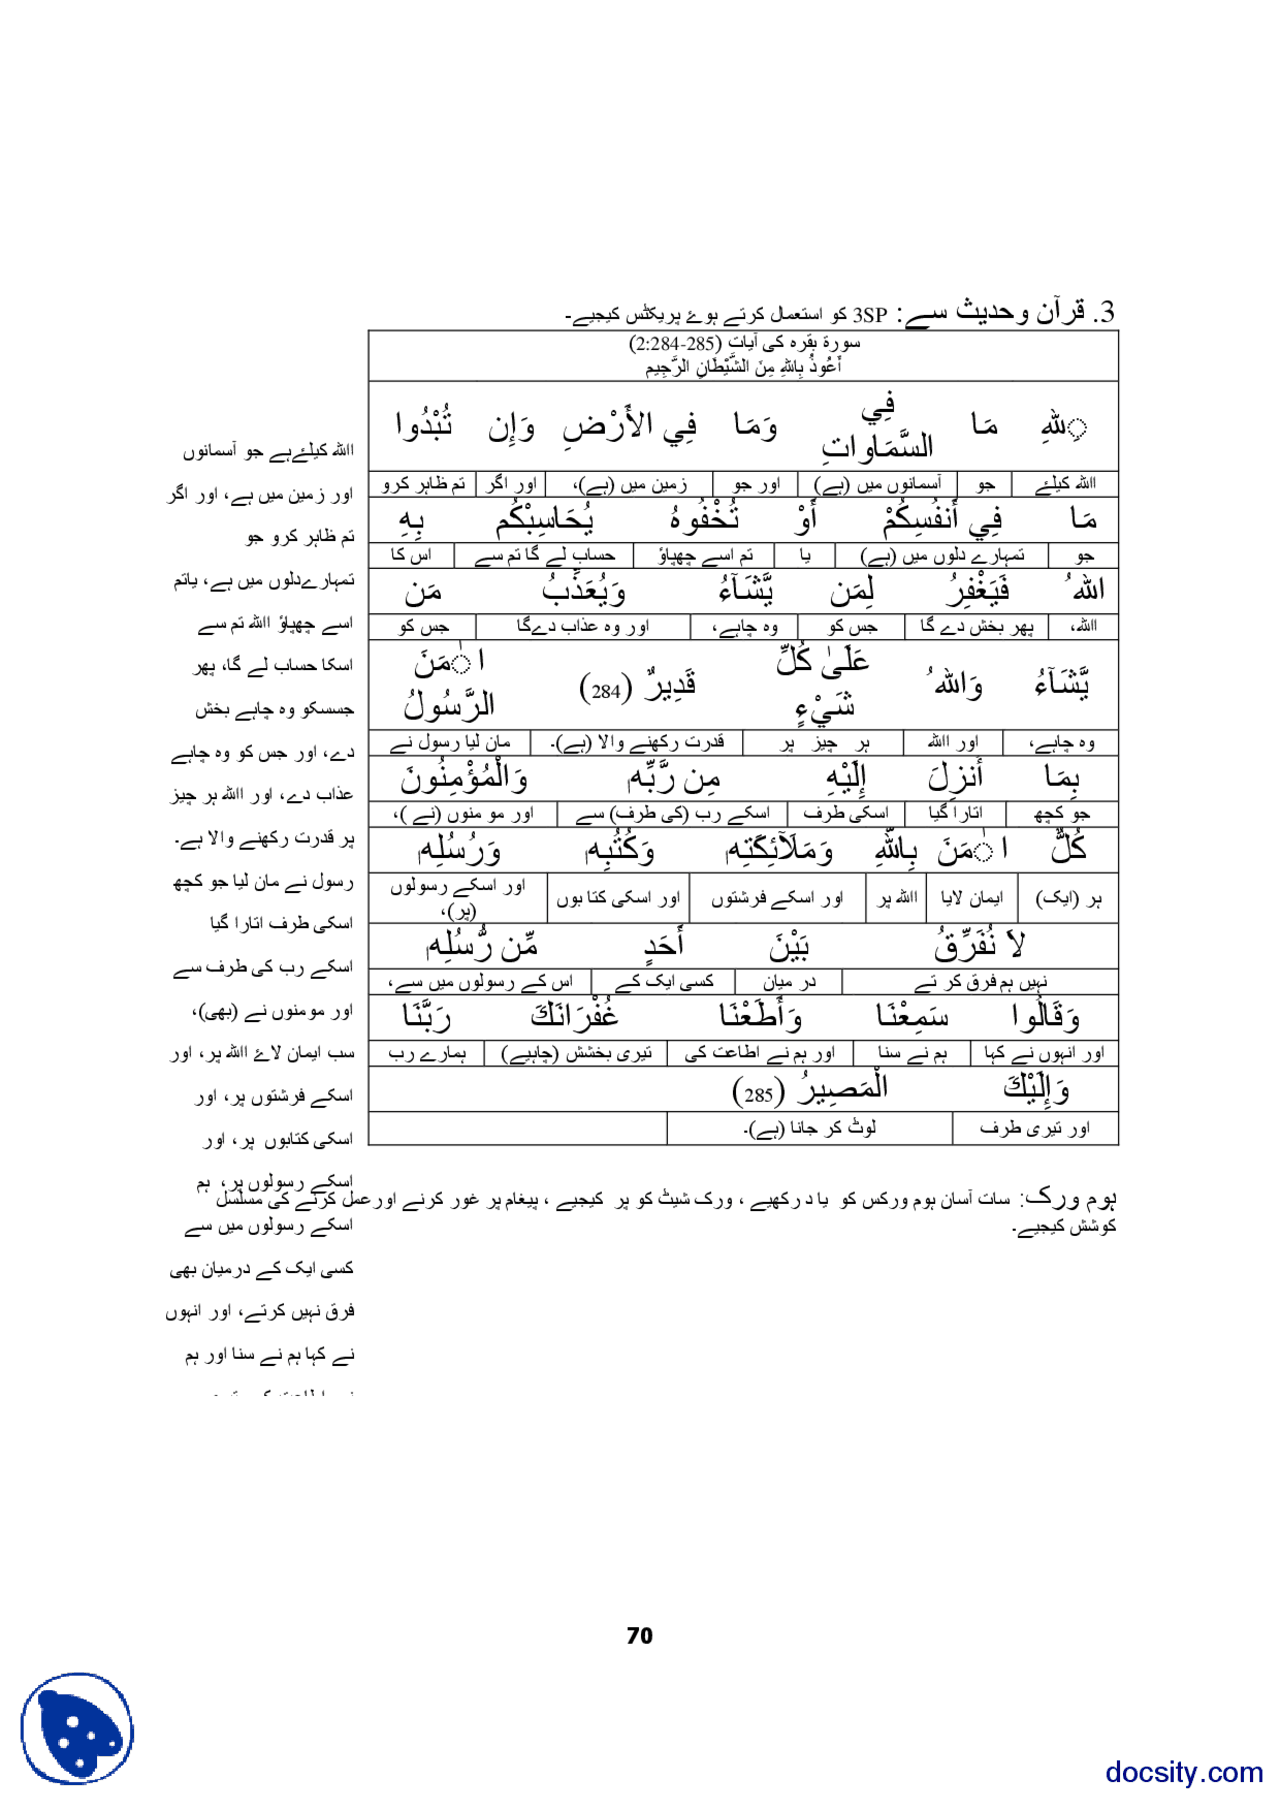 3. قرآن وحدیث سے: 3SP کو استعمال کرتے ہوۓ پریکٹس کیجیے۔
سورۃ بقرہ کی آیات (2:284-285)
أَعُوذُ بِاللهِ مِنَ الشَّيْطَانِ الرَّجِيم
ِللهِ مَا فِي السَّمَاوَاتِ وَمَا فِي الأَرْضِ وَإِن تُبْدُوا
االله کیلئے جو آسمانوں میں (ہے) اور جو زمین میں (ہے)، اور اگر تم ظاہر کرو
مَا فِي أَنفُسِكُمْ أَوْ تُخْفُوهُ يُحَاسِبْكُم بِهِ
جو تمہارے دلوں میں (ہے) یا تم اسے چھپاؤ حساب لے گا تم سے اس کا
اللهُ فَيَغْفِرُ لِمَن يَّشَآءُ وَيُعَذِّبُ مَن
االله، پھر بخش دے گا جس کو وہ چاہے، اور وہ عذاب دےگا جس کو
يَّشَآءُ وَاللهُ عَلَىٰ كُلِّ شَيْءٍ قَدِيرٌ (284) اٰمَنَ الرَّسُولُ
وہ چاہے، اور االله ہر چیز پر قدرت رکھنے والا (ہے)۔ مان لیا رسول نے
بِمَا أُنزِلَ إِلَيْهِ مِن رَّبِّه وَالْمُؤْمِنُونَ
جو کچھ اتارا گیا اسکی طرف اسکے رب (کی طرف) سے اور مو منوں (نے )،
كُلٌّ اٰمَنَ بِاللهِ وَمَلَآئِكَتِه وَكُتُبِه وَرُسُلِه
ہر (ایک) ایمان لایا االله پر اور اسکے فرشتوں اور اسکی کتا بوں اور اسکے رسولوں (پر)،
لاَ نُفَرِّقُ بَيْنَ أَحَدٍ مِّن رُّسُلِه
نہیں ہم فرق کر تے در میان کسی ایک کے اس کے رسولوں میں سے،
وَقَالُوا سَمِعْنَا وَأَطَعْنَا غُفْرَانَكَ رَبَّنَا
اور انہوں نے کہا ہم نے سنا اور ہم نے اطاعت کی تیری بخشش (چاہیے) ہمارے رب
وَإِلَيْكَ الْمَصِيرُ (285)
اور تیری طرف لوٹ کر جانا (ہے)۔
االله کیلئےہے جو آسمانوں
اور زمین میں ہے، اور اگر
تم ظاہر کرو جو
تمہارےدلوں میں ہے، یاتم
اسے چھپاؤ االله تم سے
اسکا حساب لے گا، پھر
جسسکو وہ چاہے بخش
دے، اور جس کو وہ چاہے
عذاب دے، اور االله ہر چیز
پر قدرت رکھنے والا ہے۔
رسول نے مان لیا جو کچھ
اسکی طرف اتارا گیا
اسکے رب کی طرف سے
اور مومنوں نے (بھی)،
سب ایمان لاۓ االله پر، اور
اسکے فرشتوں پر، اور
اسکی کتابوں پر، اور
اسکے رسولوں پر، ہم
اسکے رسولوں میں سے
کسی ایک کے درمیان بھی
فرق نہیں کرتے، اور انہوں
نے کہا ہم نے سنا اور ہم
ہوم ورک: سات آسان ہوم ورکس کو یا د رکھیے ، ورک شیٹ کو پر کیجیے ، پیغام پر غور کرنے اورعمل کرنے کی مسلسل
کوشش کیجیے۔
70
docsity.com